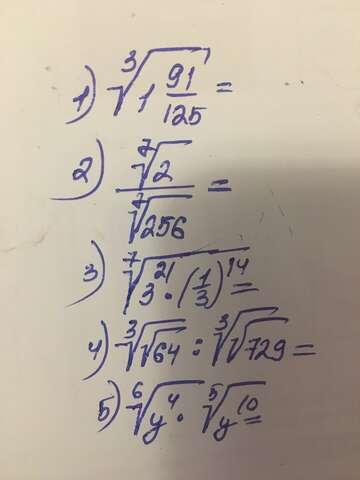 1) ∛(1 91/125) =
2) ⁷√2 / ⁷√256 =
3) ⁷√(3²¹ · (1/3)¹⁴) =
4) ∛√64 : ∛√729 =
5) ⁶√y⁴ · ⁵√y¹⁰ =